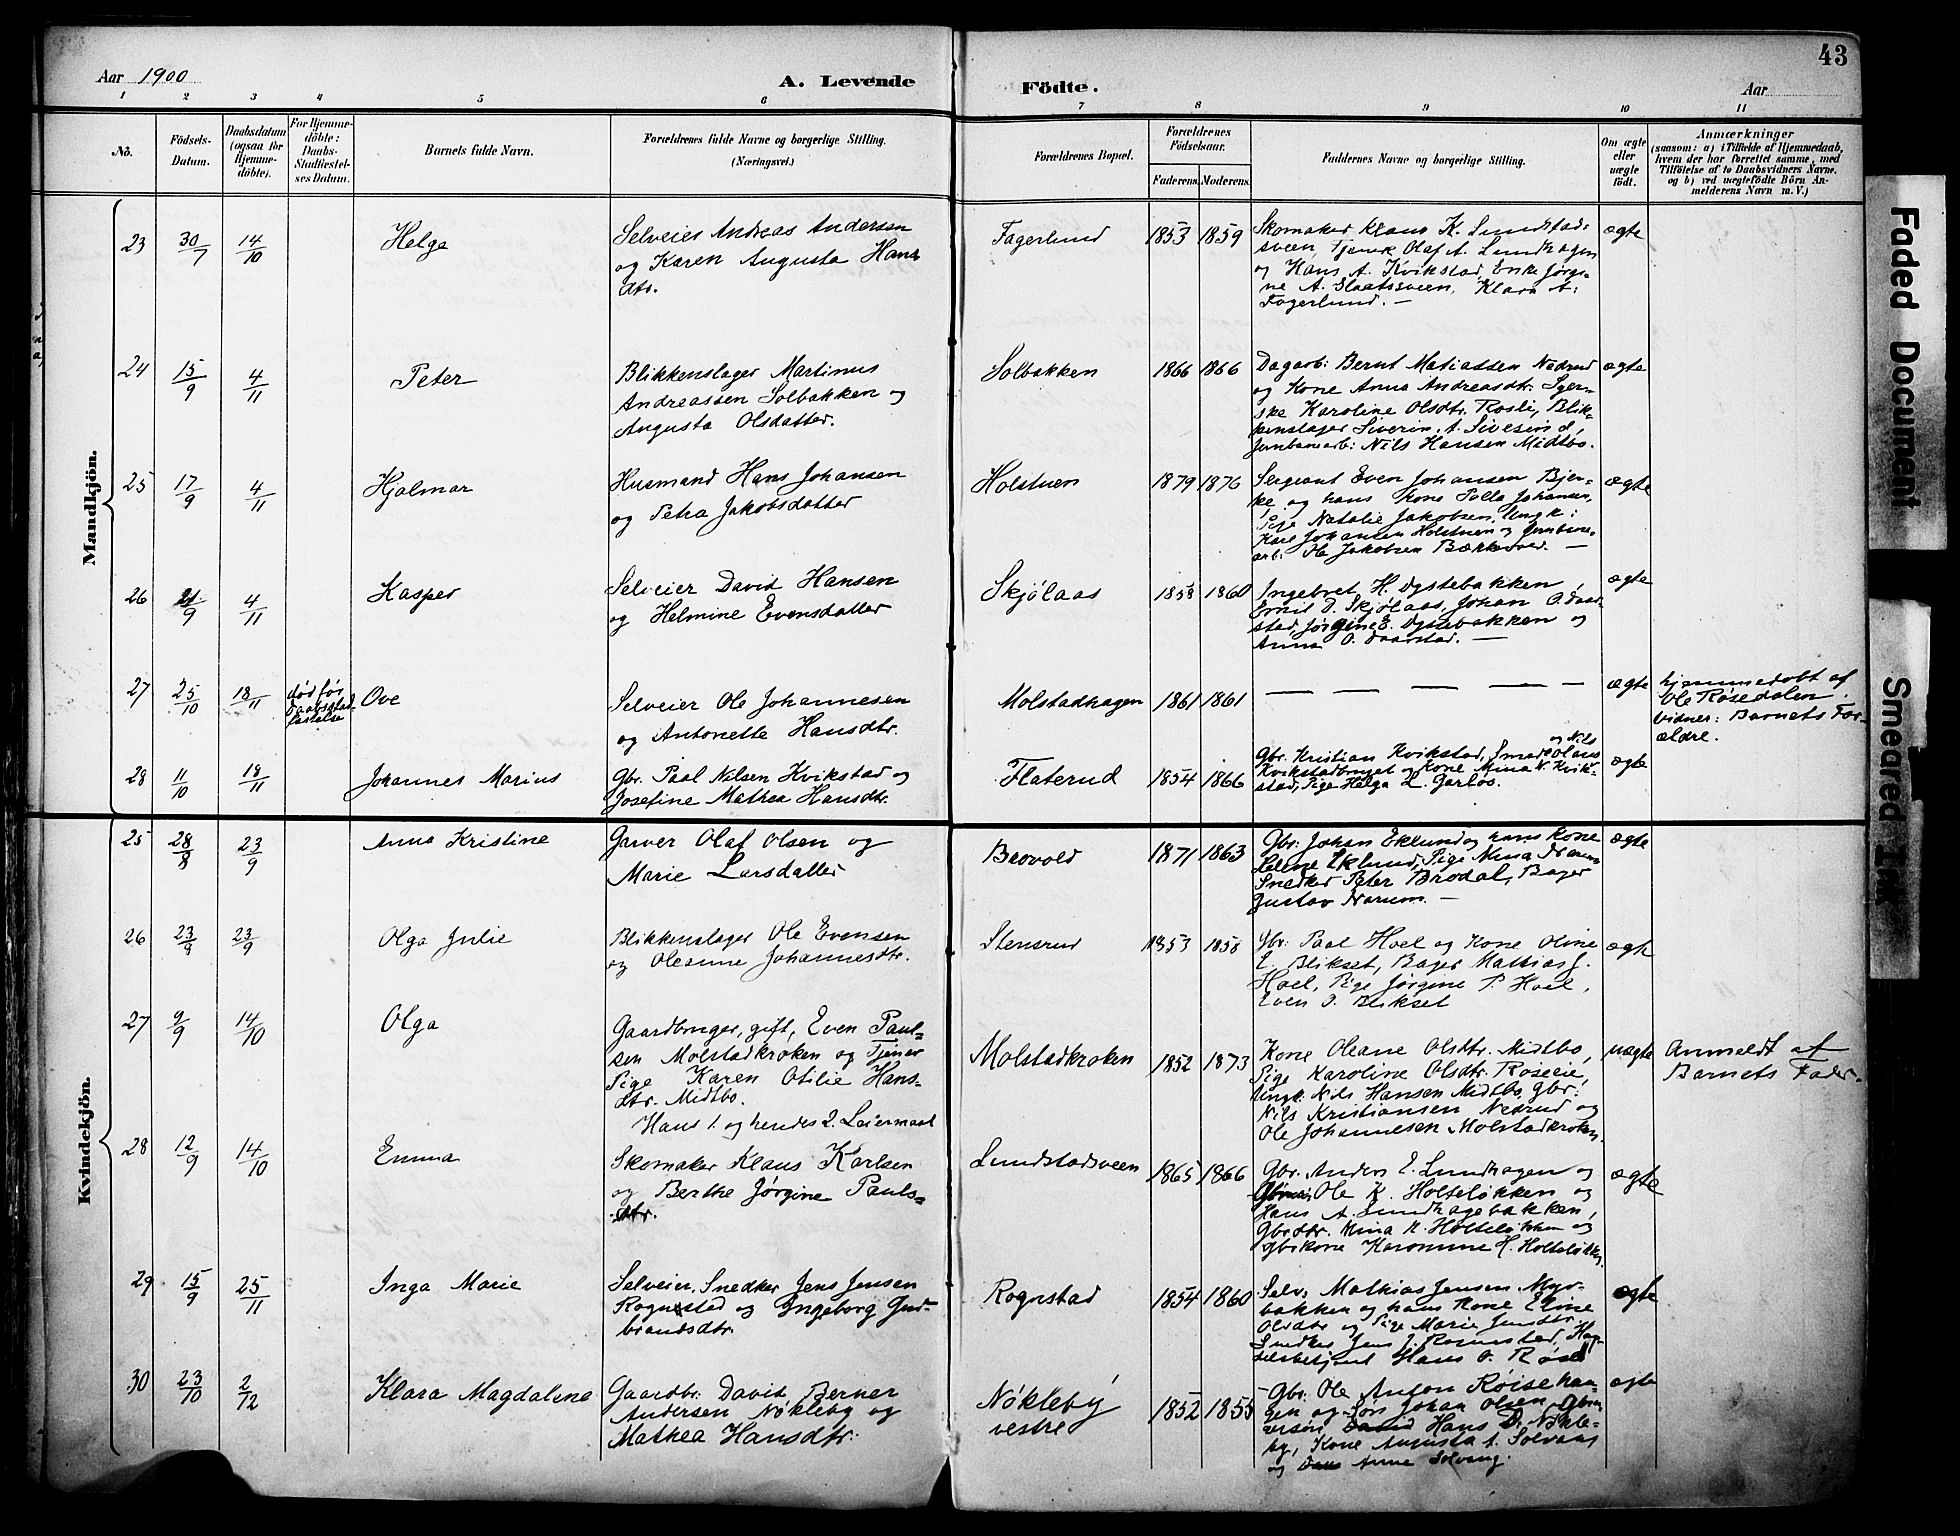 43
Aar 1900
A. Levende
Födte.
Aar
1 2 3 4 5 6 7 8 9 10 11
No.
Födsels-Datum.
Daabsdatum (ogsaa for Hjemmedöbte).
For Hjemmedöbte: Daabs-Stadfæstelses Datum.
Barnets fulde Navn.
Forældrenes fulde Navne og borgerlige Stilling. (Næringsvei.)
Forældrenes Bopæl.
Forældrenes Födselsaar.
Faderens. Moderens.
Faddernes Navne og borgerlige Stilling.
Om ægte eller uægte födt.
Anmærkninger
(saasom: a) i Tilfælde af Hjemmedaab, hvem der har forrettet samme, med Tilföielse af to Daabsvidners Navne, og b) ved uægtefödte Börn Anmelderens Navn m. V.)
Mandkjön.
23 30/7 14/10 Helge
Selveier Andreas Andersen
og Karen Augusta Hans
dtr.
Fagerlund 1853 1859
Skomaker Klaus K. Lundstad-
sveen, Tjener Olaf A. Lundhagen
og Hans A. Kvikstad, Enke Jørgi-
ne A. Slaatssveen, Klara A.
Fagerlund. —
ægte
24 15/9 4/11 Peter
Blikkenslager Martinus
Andreassen Solbakken og
Augusta Olsdatter.
Solbakken 1866 1866
Dagarb: Bernt Matiassen Nedrud
og Kone Anna Andreasdtr.
Karoline Olsdtr. Roslie, Blik-
kenslager Siverin A.
Jernbanearb: Nils Hansen Midtbø.
ægte
25 17/9 4/11 Hjalmar
Husmand Hans Johansen
og Petra Jakobsdatter
Holstuen 1879 1876
Sergeant Even Johansen Bjer-
ke og hans Kone Johansen,
Pige Natalie Jakobsen, Ungk:
Karl Johansen Holstuen og Jernbane-
arb: Ole Jakobsen Bækkevold. —
ægte
26 21/9 4/11 Kasper
Selveier David Hansen
og Helmine Evensdatter
Skjølaas 1858 1860
Ingebret H. Dystebakken,
Emil D. Skjølaas, Johan O. Daar-
stad, Jørgine E. Dystebakken og
Anna O. Daarstad. —
ægte
27 25/10 18/11 død før Daabsstadfæstelse Ove
Selveier Ole Johannesen
og Antonette Hansdtr.
Molstadhagen 1861 1861
— — — — —
ægte
hjemmedøbt af
Ole Røsedalen.
Vidner: Barnets For-
ældre.
28 11/10 18/11 Johannes Marius
Gbr. Paal Nilsen Kvikstad og
Josefine Mathea Hansdtr.
Flaterud 1854 1866
og Nils
Gbr. Kristian Kvikstad, Olaus
Kvikstadbruget og Kone Mina N. Kvik-
stad, Pige Helga L. Garlos.
ægte
Kvindekjön.
25 28/8 23/9 Anna Kristine
Garver Olaf Olsen og
Marie Larsdatter
Brovold 1871 1863
Gbr: Johan Eklund og hans Kone
Helene Eklund, Pige Mina Narum
Snedker Peter Brodal, Bager
Gustav Narum. —
ægte
26 23/8 23/9 Olga Julie
Blikkenslager Ole Evensen
og Olesine Johannesdtr.
Stensrud 1853 1858
Gbr: Paal Hoel og Kone Oline
E. Blikset, Bager Mathias J.
Hoel, Pige Jørgine P. Hoel,
Even O. Blikset
ægte
27 9/9 14/10 Olga
Gaardbruger, gift, Even Paul-
sen Molstadkroken og Tjener
Pige Karen Otilie Hans-
dtr. Midtbø.
Hans 1. og hendes 2. Leiermaal
Molstadkroken 1852 1873
Kone Oleane Olsdtr. Midtbø,
Pige Karoline Olsdtr. Roseie,
Ungk. Nils Hansen Midtbø, Gbr.
Nils Kristiansen Nedrud og
Ole Johannesen Molstadkroken.
uægte
Anmeldt af
Barnets Fader.
28 12/9 14/10 Emma
Skomaker Klaus Karlsen
og Berthe Jørgine Pauls-
dtr.
Lundstadsveen 1865 1866
Gbr. Anders E. Lundhagen og
Ole K. Holteløkken og
Hans A. Lundhagebakken,
Gbrdtr. Mina K. Holteløkken og
Gbrkone Karomine H. Holteløkken
ægte
29 15/9 25/11 Inga Marie
Selveier, Snedker Jens Jensen
Rognstad og Ingeborg Gud-
brandsdtr.
Rognstad 1854 1860
Selv: Mathias Jensen Myr-
bakken og hans Kone Eline
Olsdtr og Pige Marie Jensdtr.
Snedker Jens J. Rognstad, Han-
delsbetjent Hans O. Røise
ægte
30 23/10 2/12 Klara Magdalene
Gaardbr: David Berner
Andersen Nøkleby og
Mathea Hansdtr.
Nökleby
vestre
1852 1855
Gbr: Ole Anton Røisehau-
gen og Johan Olsen,
Hans D. Nøkle-
by, Kone Augusta A. Solvang
og Anne Solvang.
ægte
Faded Document
Smeared Ink